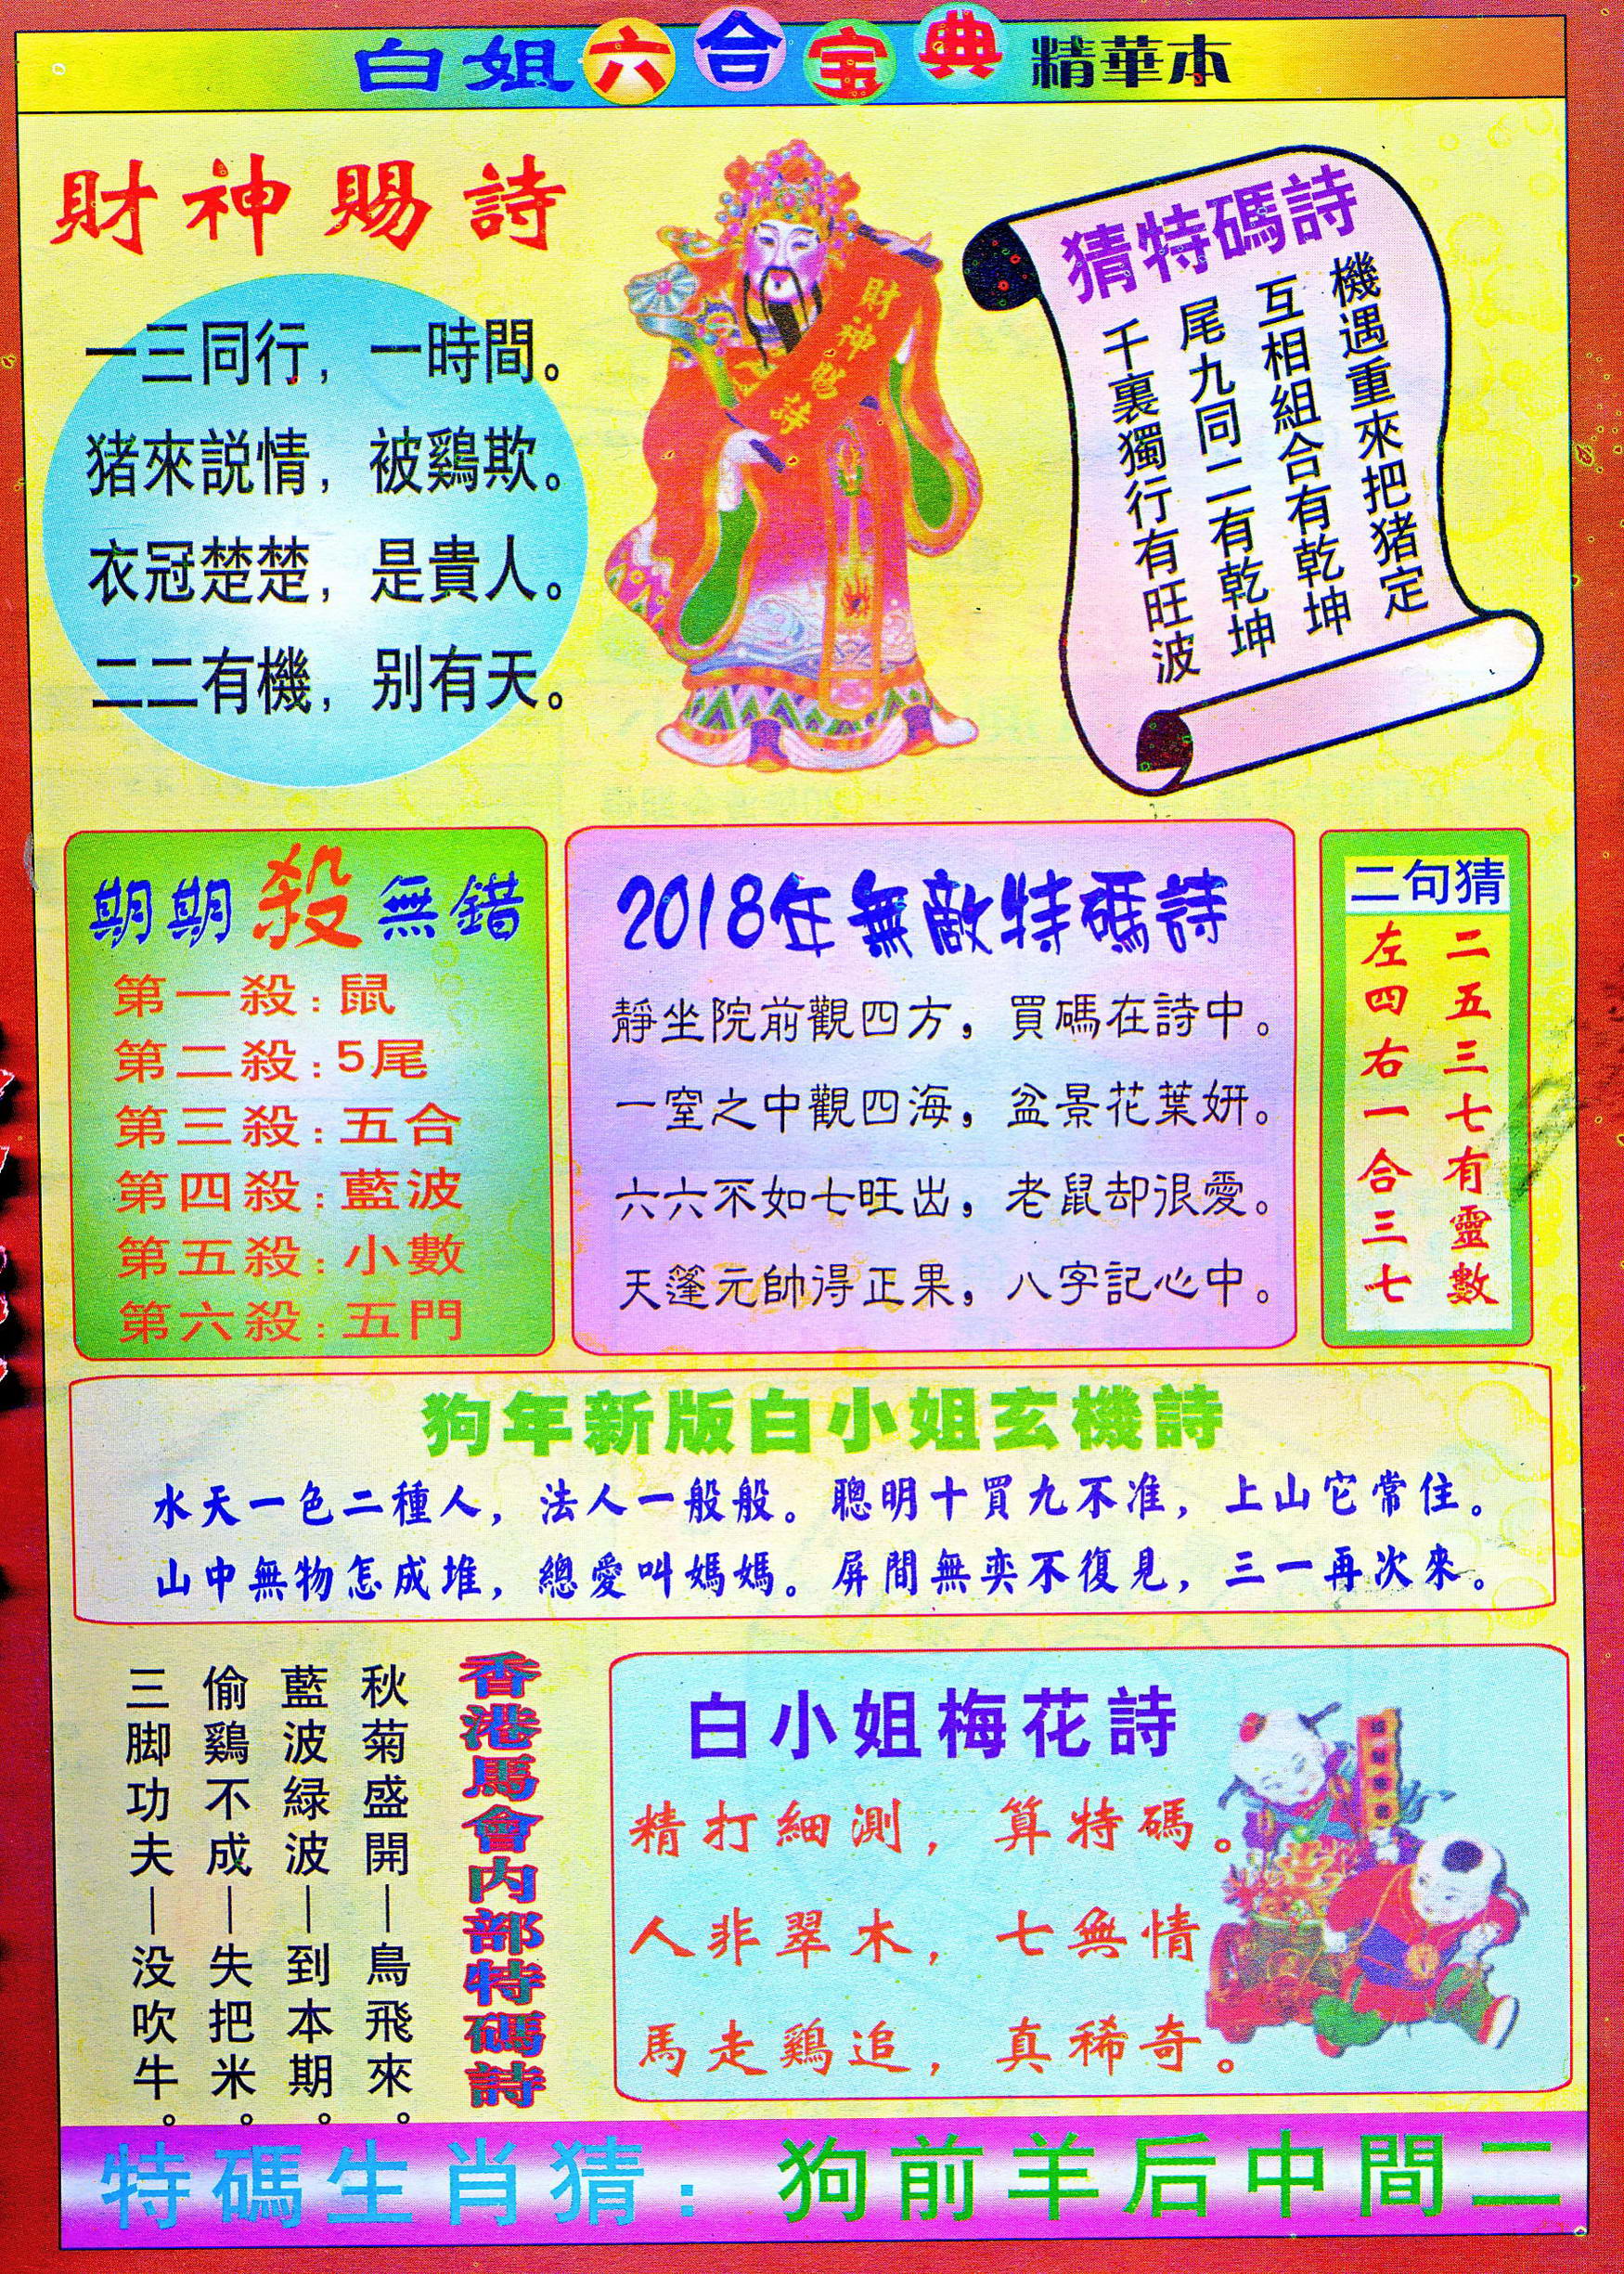 白姐六合宝典精華本
財神賜詩
一三同行，一時間。
猪來説情，被鷄欺。
衣冠楚楚，是貴人。
二二有機，别有天。
財神賜詩
猜特碼詩
機遇重來把猪定
互相組合有乾坤
尾九同二有乾坤
千裏獨行有旺波
期期殺無錯
第一殺：鼠
第二殺：5尾
第三殺：五合
第四殺：藍波
第五殺：小數
第六殺：五門
2018年無敵特碼詩
靜坐院前觀四方，買碼在詩中。
一室之中觀四海，盆景花葉妍。
六六不如七旺出，老鼠却很愛。
天篷元帥得正果，八字記心中。
二句猜
二五三七有靈數
左四右一合三七
狗年新版白小姐玄機詩
水天一色二種人，法人一般般。聰明十買九不准，上山它常住。
山中無物怎成堆，總愛叫媽媽。屏間無奕不復見，三一再次來。
香港馬會内部特碼詩
秋菊盛開—鳥飛來。
藍波緑波—到本期。
偷鷄不成—失把米。
三脚功夫—没吹牛。
白小姐梅花詩
精打細測，算特碼。
人非翠木，七無情
馬走鷄追，真稀奇。
特碼生肖猜：狗前羊后中間二